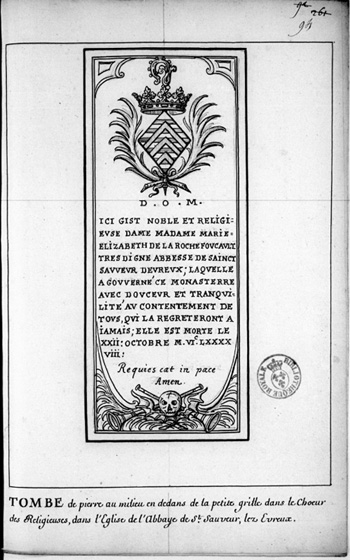 94
D. O. M.
ICI GIST NOBLE ET RELIGI=
EVSE DAME MADAME MARIE=
ELIZABETH DE LA ROCHEFOUCAULT
TRES DIGNE ABBESSE DE SAINCT
SAVVEVR DEVREVX; LAQVELLE
A GOVVERNÉ CE MONASTERRE
AVEC DOVCEVR ET TRANQVI=
LITÉ AV CONTENTEMENT DE
TOVS, QVI LA REGRETERONT A
IAMAIS; ELLE EST MORTE LE
XXII: OCTOBRE M. VI.C LXXXX
VIII:
Requies cat in pace
Amen.
BIBLIOTHEQUE ROYALE
TOMBE de pierre au milieu en dedans de la petite grille dans le Choeur
des Religieuses, dans l'Eglise de l'Abbaye de St. Sauveur, lez Evreux.